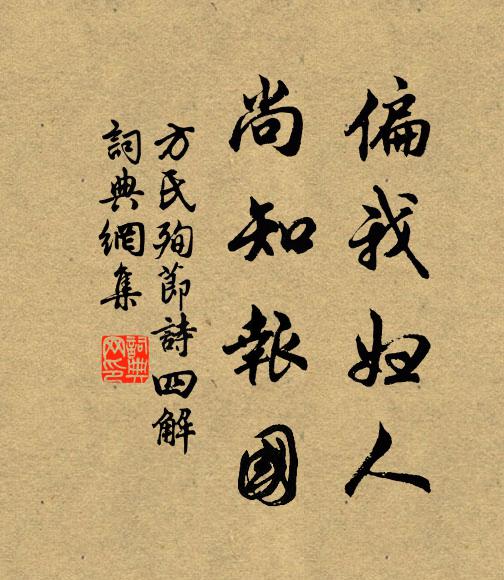 偏我妇人
尚知報國
方氏殉節詩四解
詞典網集
詞典
网印